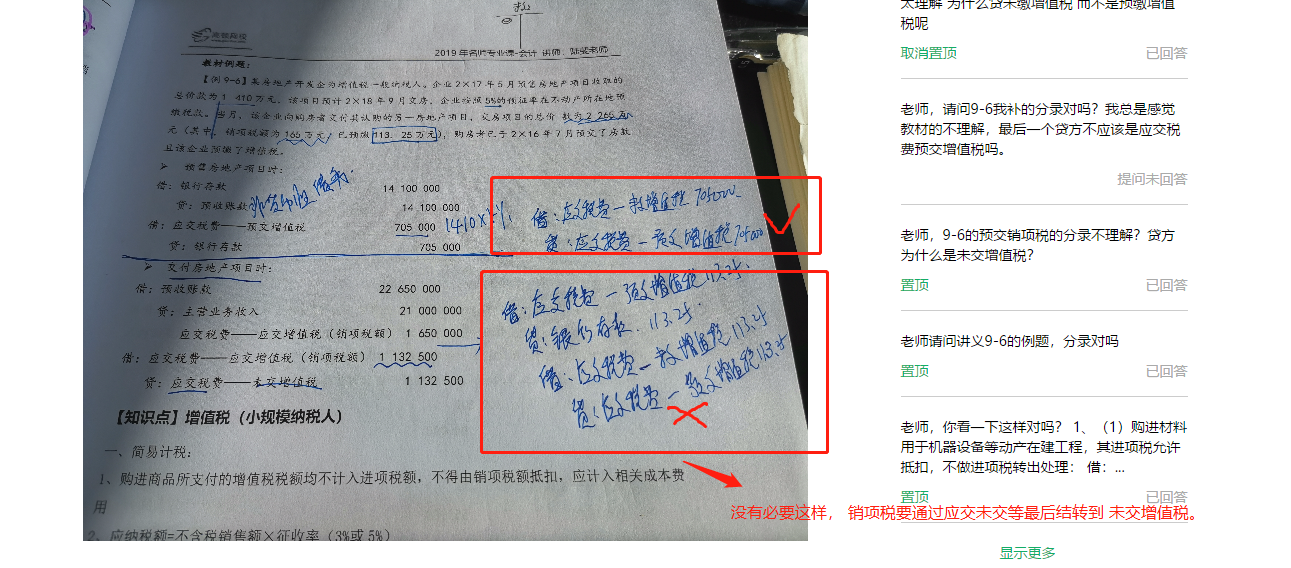 高顿财税
2019年名师专业课-会计 讲师：
教材例题：
【例 9-6】某房地产开发企为增值税一般纳税人。企业 2×17 年 5 月预售房地产项目收取的
总价款为 1 410 万元，该项目预计 2×18 年 9 月交房，企业按照 5%的预征率在不动产所在地预
缴税款。当月，该企业向购房者交付其认购的另一房地产项目，交房项目的总价 款为 2 265 万
元（其中，销项税额为 165 万元，已预缴 113.25 万元），购房者已于 2×16 年 7 月预交了房款
且该企业预缴了增值税。
➢ 预售房地产项目时：
借：银行存款 14 100 000
贷：预收账款 14 100 000
借：应交税费——预交增值税 705 000
1410×5%
贷：银行存款 705 000
➢ 交付房地产项目时：
借：预收账款 22 650 000
贷：主营业务收入 21 000 000
应交税费——应交增值税（销项税额） 1 650 000
借：应交税费——应交增值税（销项税额） 1 132 500
贷：应交税费——未交增值税 1 132 500
【知识点】增值税（小规模纳税人）
一、简易计税：
1、购进商品所支付的增值税税额均不计入进项税额，不得由销项税额抵扣，应计入相关成本费
用
2、应纳税额=不含税销售额×征收率（3%或 5%）
借：应交税费—未交增值税 705000
贷：应交税费—预交增值税 705000
借：应交税费—预交增值税 113.25
贷：银行存款 113.25
借：应交税费—未交增值税 113.25
贷：应交税费—预交增值税 113.25
没有必要这样， 销项税要通过应交未交等最后结转到 未交增值税。
太理解 为什么贷未缴增值税 而不是预缴增值
税呢
取消置顶 已回答
老师，请问9-6我补的分录对吗？我总是感觉
教材的不理解，最后一个贷方不应该是应交税
费预交增值税吗。
提问未回答
老师，9-6的预交销项税的分录不理解？贷方
为什么是未交增值税？
置顶 已回答
老师请问讲义9-6的例题，分录对吗
置顶 已回答
老师，你看一下这样对吗？ 1、（1）购进材料
用于机器设备等动产在建工程，其进项税允许
抵扣，不做进项税转出处理： 借：...
置顶 已回答
显示更多